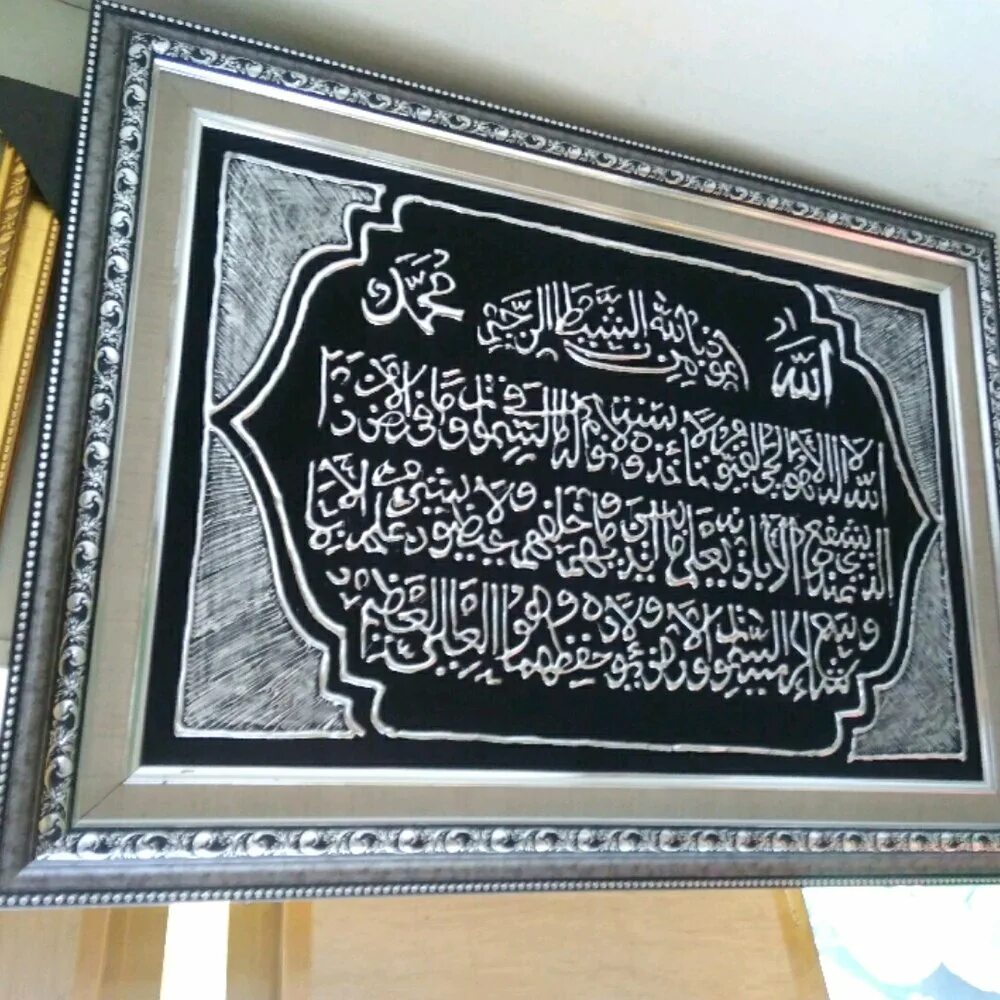 الله
محمد
اعوذ بالله من الشيطن الرجيم
الله لا اله الا هو الحي القيوم لا تأخذه سنة ولا نوم له ما في السموت وما في الارض من ذا
الذي يشفع عنده الا باذنه يعلم ما بين ايديهم وما خلفهم ولا يحيطون بشيء من علمه الا بما
شاء وسع كرسيه السموت والارض ولا يؤده حفظهما وهو العلي العظيم